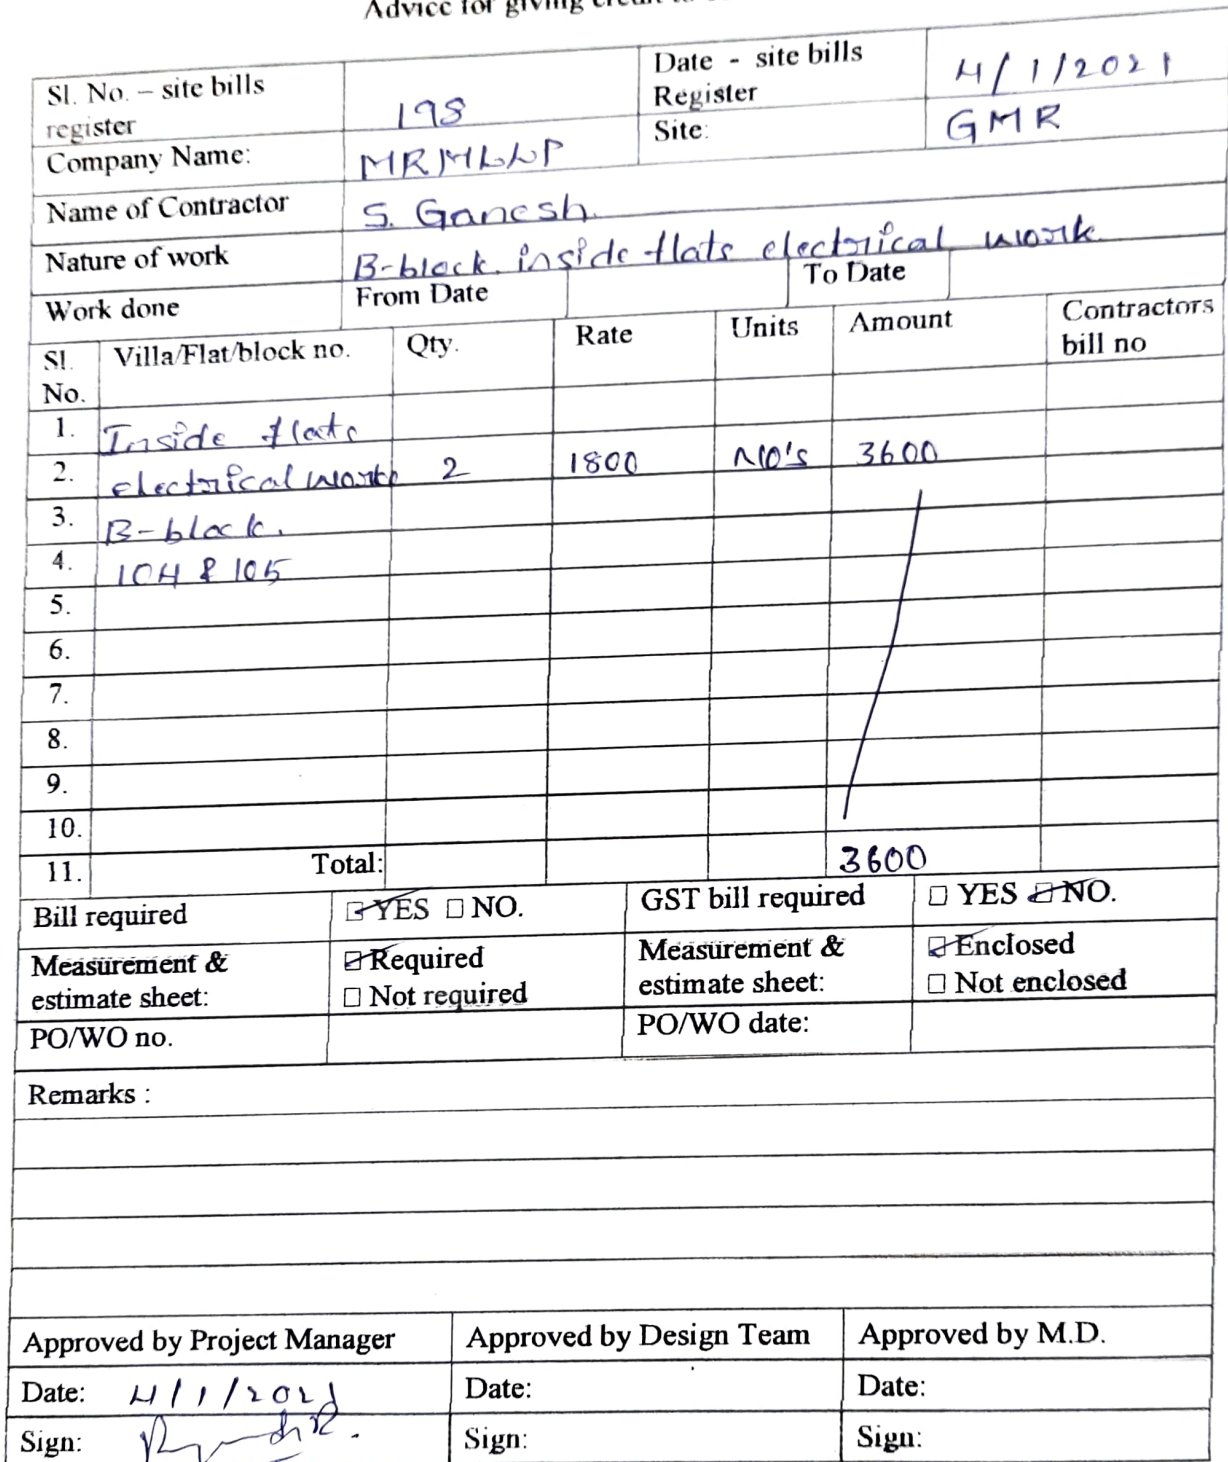 Advice for giving credit to
Sl. No. – site bills register 198 Date - site bills Register 4/1/2021
Company Name: MRMLLP Site: GMR
Name of Contractor S. Ganesh.
Nature of work B-block. inside flats electrical work.
Work done From Date To Date
Sl. No. Villa/Flat/block no. Qty. Rate Units Amount Contractors bill no
1. Inside flats
2. electrical work 2 1800 NO's 3600
3. B-block.
4. 104 & 105
5.
6.
7.
8.
9.
10.
11. Total: 3600
Bill required YES NO. GST bill required YES NO.
Measurement & estimate sheet: Required Not required Measurement & estimate sheet: Enclosed Not enclosed
PO/WO no. PO/WO date:
Remarks :
Approved by Project Manager Approved by Design Team Approved by M.D.
Date: 4/1/2021 Date: Date:
Sign: Sign: Sign: